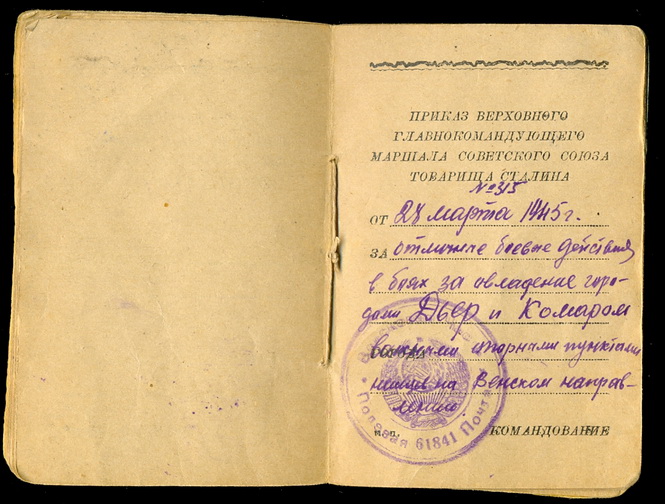 ПРИКАЗ ВЕРХОВНОГО
ГЛАВНОКОМАНДУЮЩЕГО
МАРШАЛА СОВЕТСКОГО СОЮЗА
ТОВАРИЩА СТАЛИНА
№ 315
ОТ 28 марта 1945 г.
ЗА отличные боевые действия
в боях за овладение горо-
дами Дьер и Комаром
важными опорными пунктами
на Венском направ-
лении.
Полевая 61841 Почта
М.П. КОМАНДОВАНИЕ